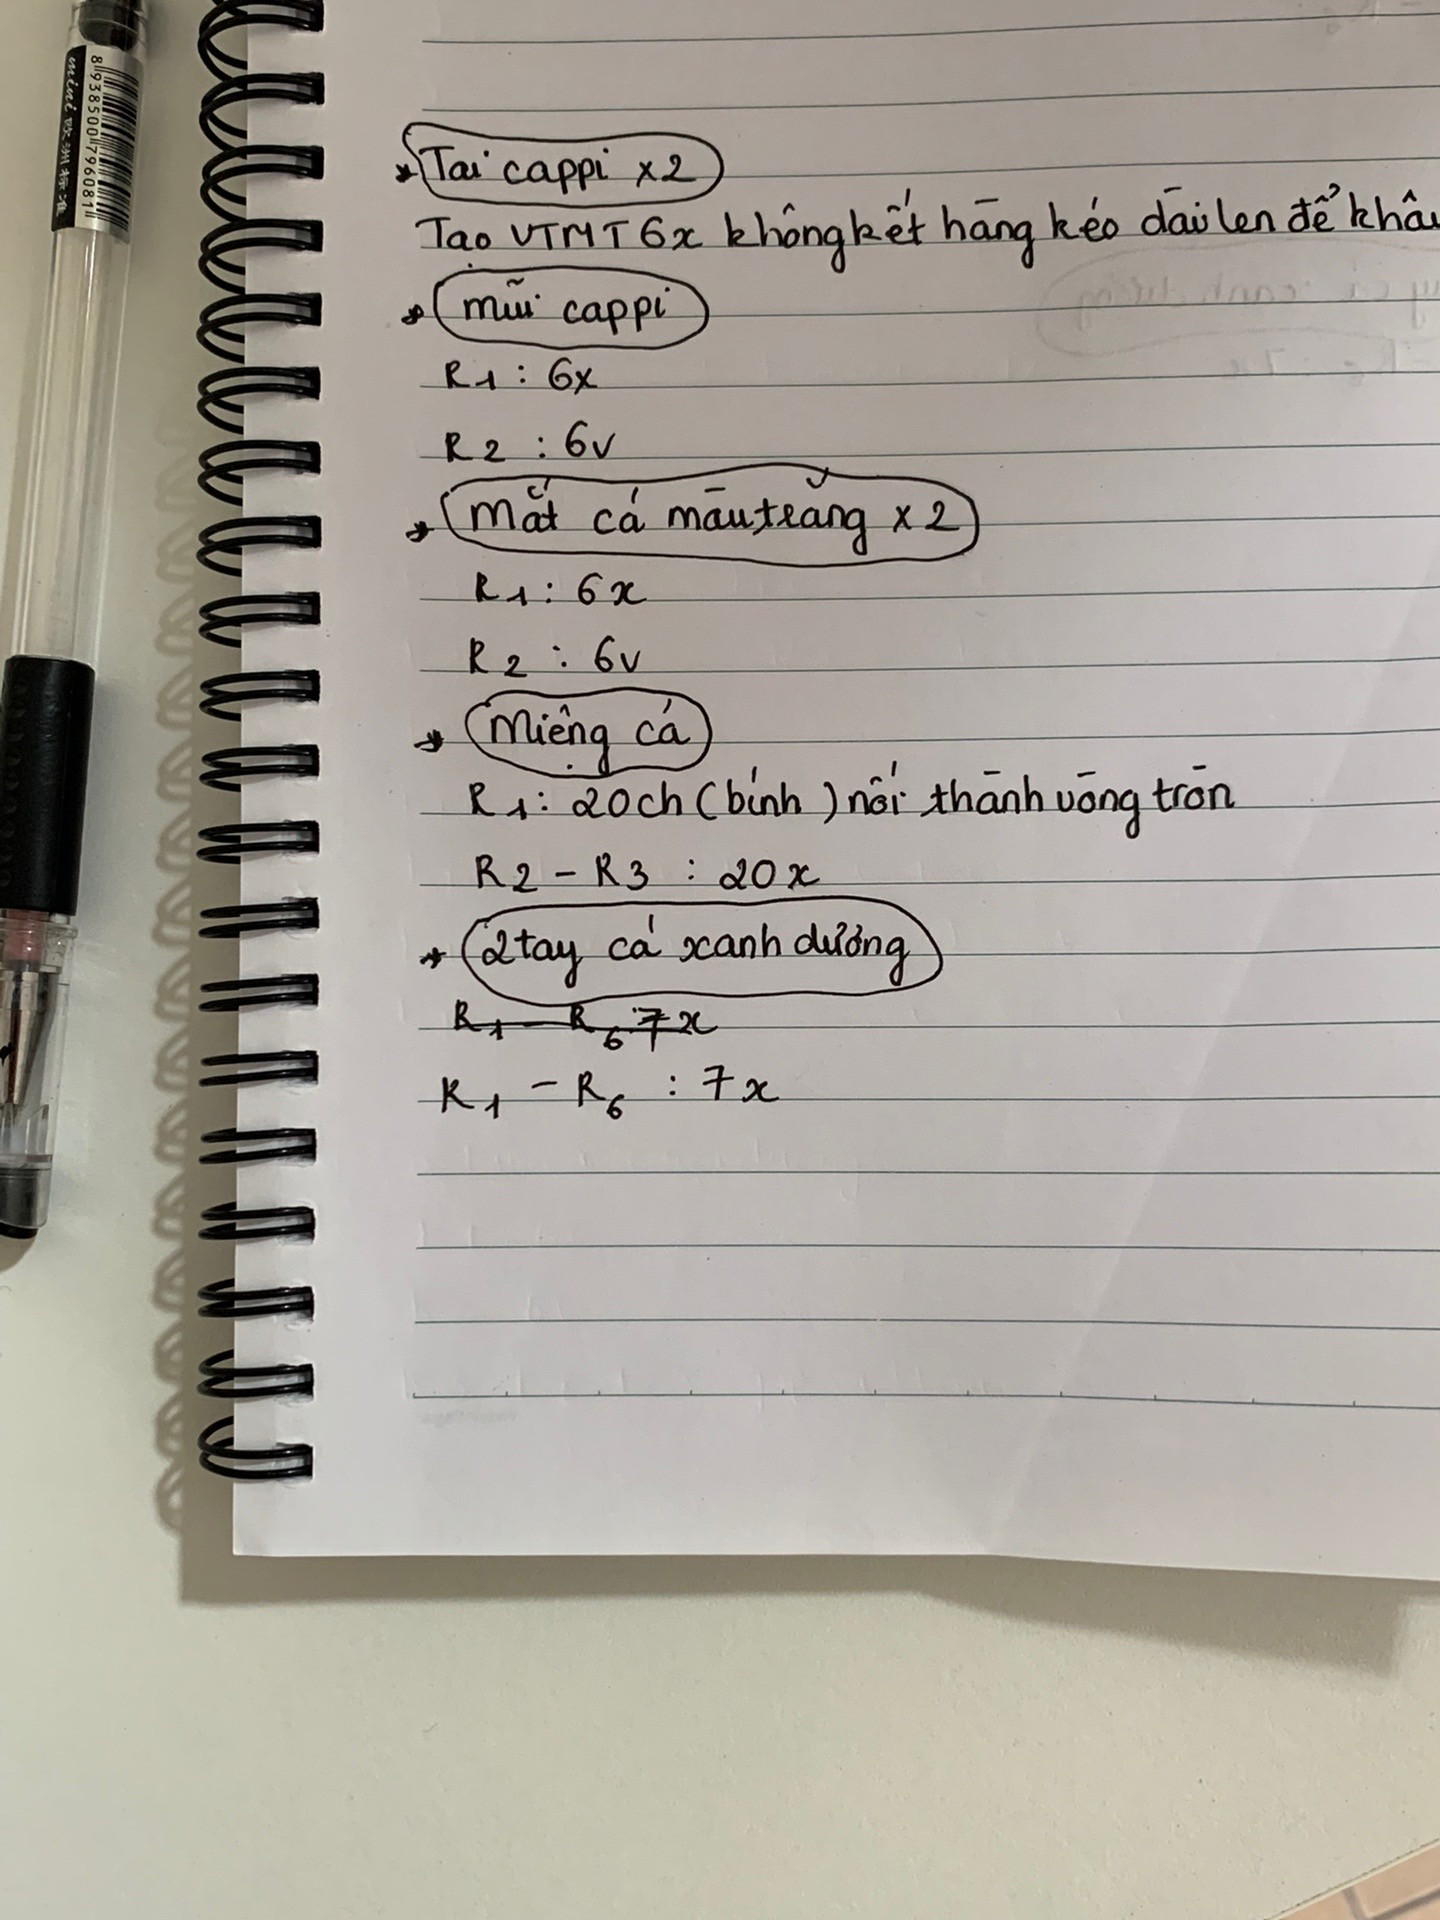 Tai cappi x2
Tạo VTMT 6x không kết hàng kéo dài len để khâu
mũi cappi
R1 : 6x
R2 : 6v
Mắt cá màu trắng x2
R1 : 6x
R2 : 6v
Miệng cá
R1 : 20ch (bính) nối thành vòng tròn
R2 - R3 : 20x
2 tay cá xanh dương
R1 - R6 7x
R1 - R6 : 7x
mini 欧洲标准
8938500796081